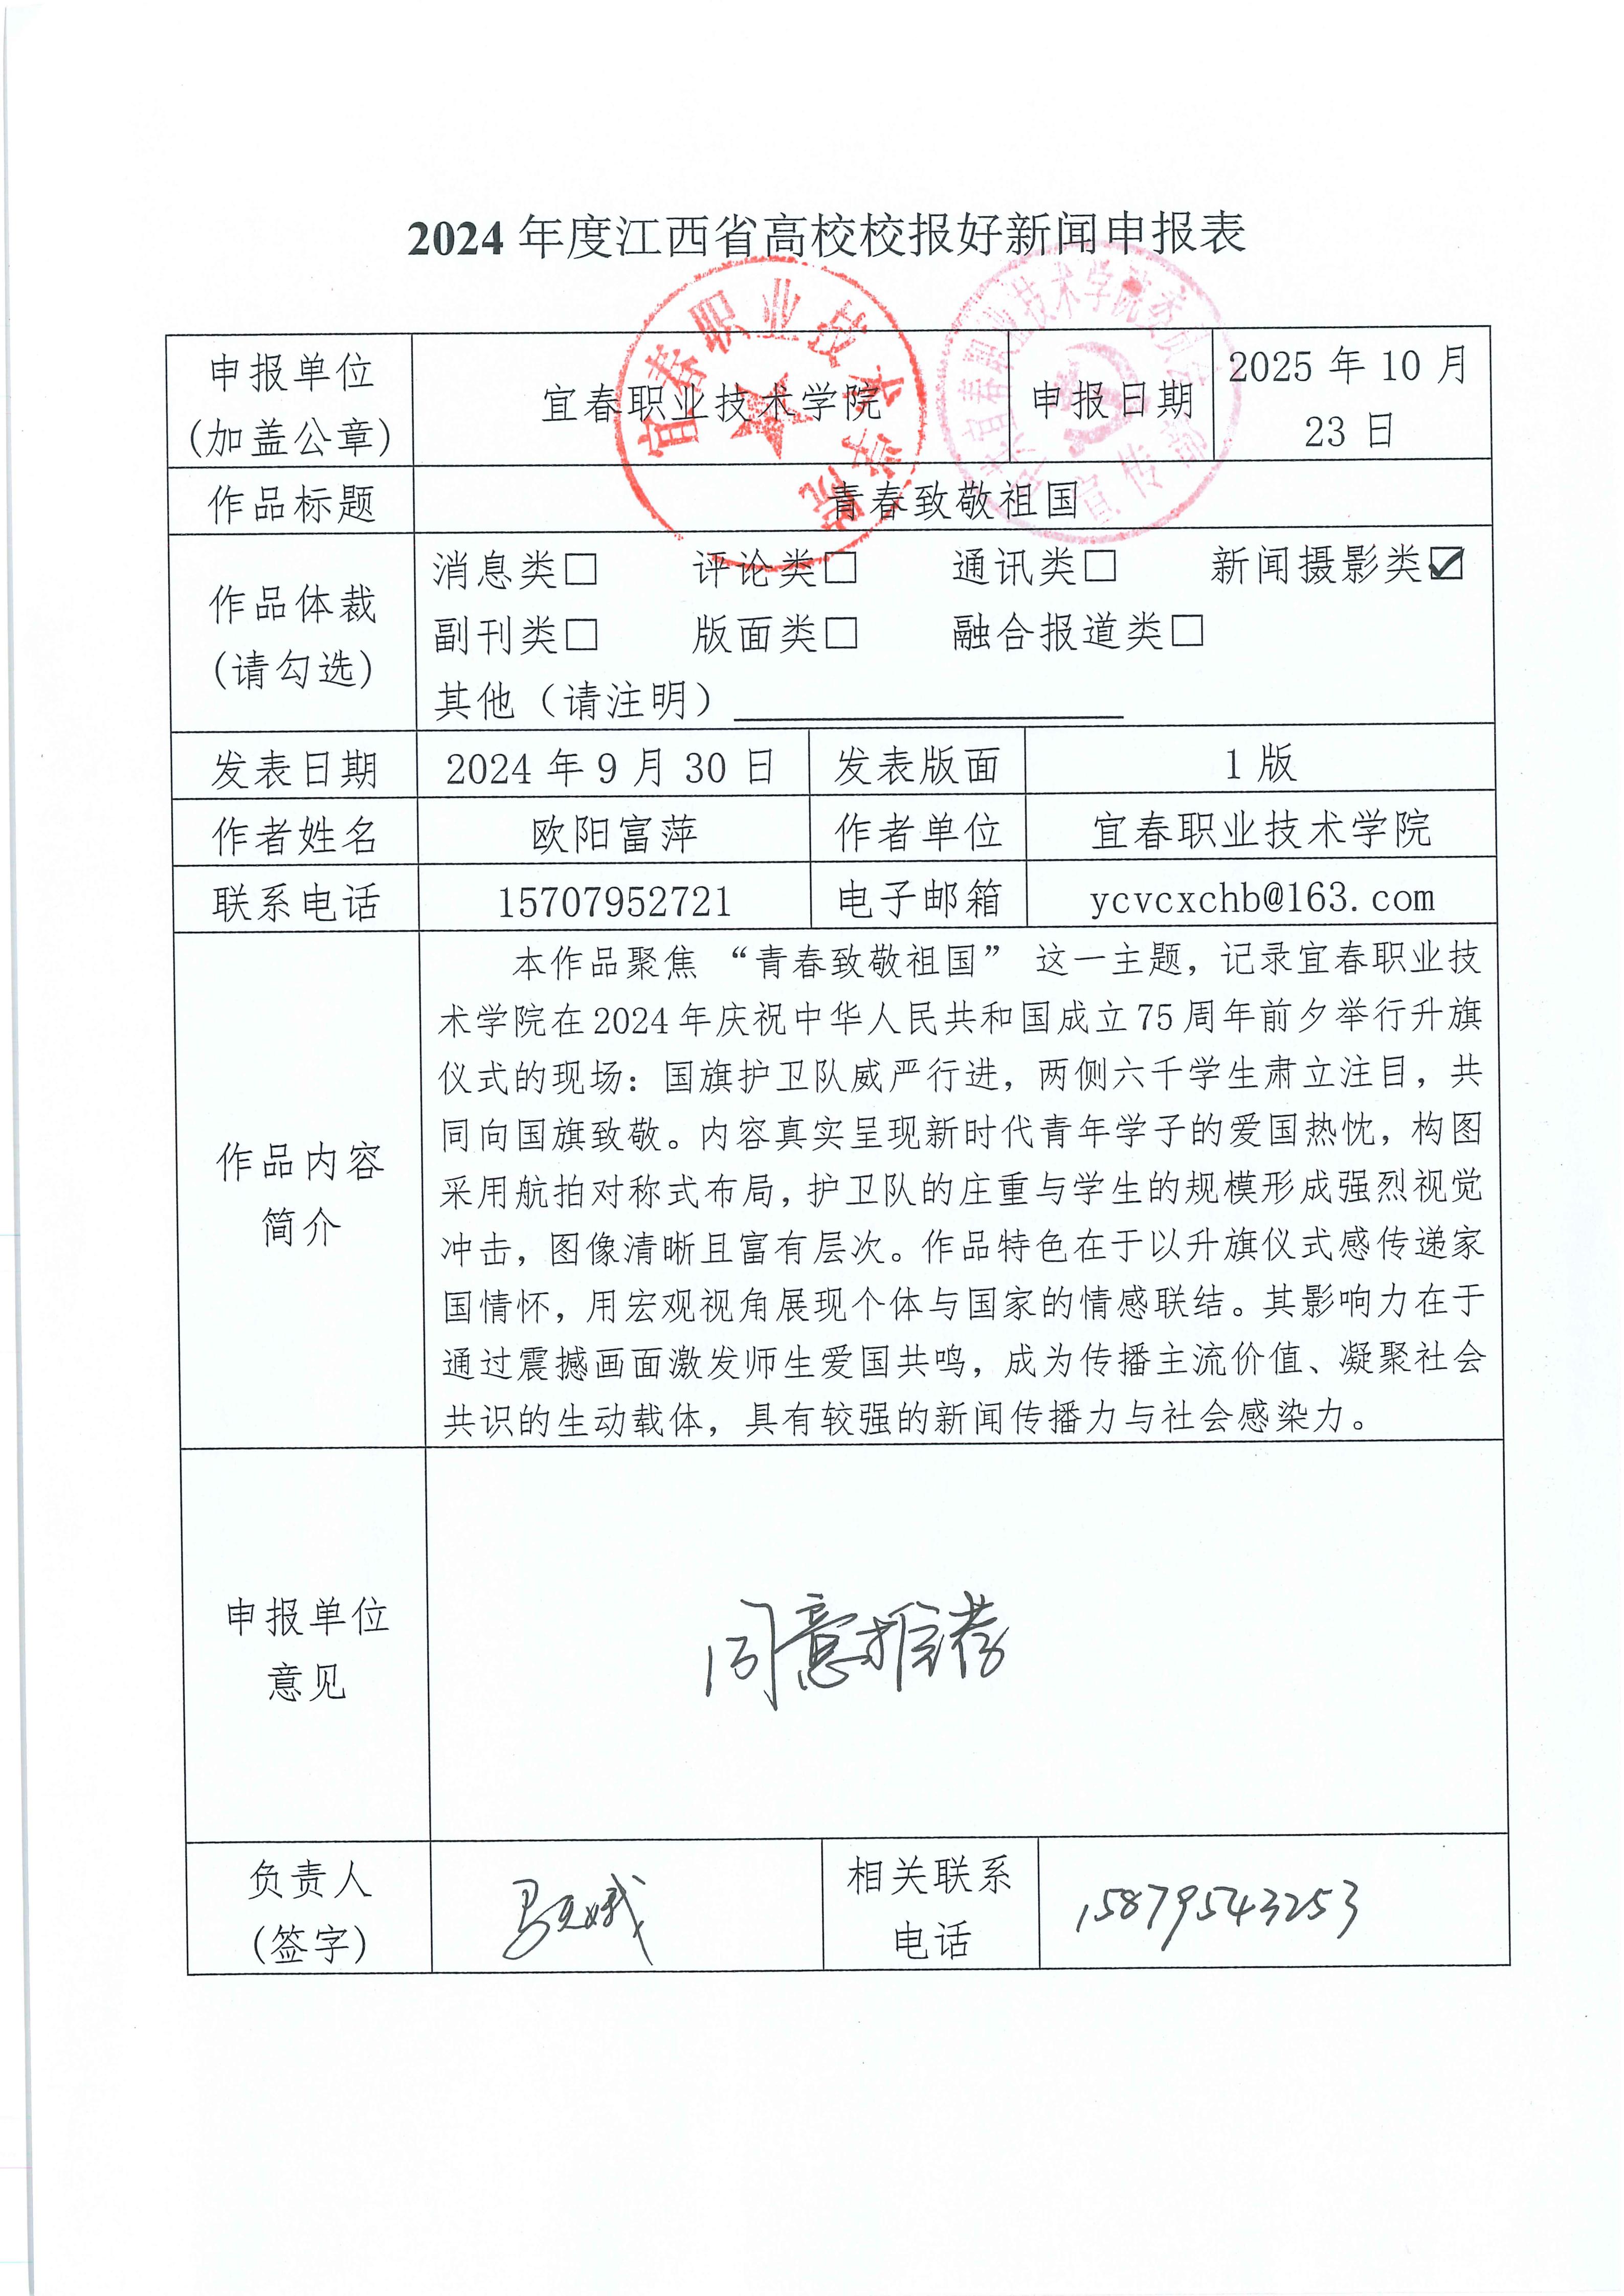 2024年度江西省高校校报好新闻申报表
申报单位
(加盖公章)
宜春职业技术学院
申报日期
2025 年 10 月
23 日
宜春职业技术学院
作品标题
青春致敬祖国
作品体裁
(请勾选)
消息类□ 评论类□ 通讯类□ 新闻摄影类☑
副刊类□ 版面类□ 融合报道类□
其他（请注明）
发表日期
2024 年 9 月 30 日
发表版面
1 版
作者姓名
欧阳富萍
作者单位
宜春职业技术学院
联系电话
15707952721
电子邮箱
ycvcxchb@163.com
作品内容
简介
本作品聚焦 “青春致敬祖国” 这一主题，记录宜春职业技
术学院在2024年庆祝中华人民共和国成立75周年前夕举行升旗
仪式的现场：国旗护卫队威严行进，两侧六千学生肃立注目，共
同向国旗致敬。内容真实呈现新时代青年学子的爱国热忱，构图
采用航拍对称式布局，护卫队的庄重与学生的规模形成强烈视觉
冲击，图像清晰且富有层次。作品特色在于以升旗仪式感传递家
国情怀，用宏观视角展现个体与国家的情感联结。其影响力在于
通过震撼画面激发师生爱国共鸣，成为传播主流价值、凝聚社会
共识的生动载体，具有较强的新闻传播力与社会感染力。
申报单位
意见
同意推荐
负责人
(签字)
相关联系
电话
15879543253